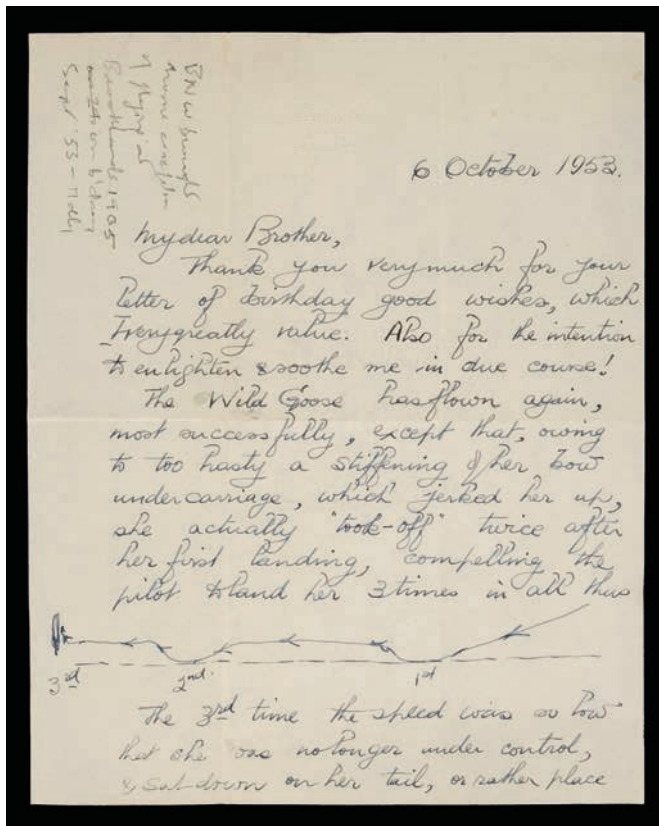 BNW brought
home
of flying at
Brooklands 1905
on 24th on b'day
Sept '53 - Molly
6 October 1953.
My dear Brother,
Thank you very much for your
letter of birthday good wishes, which
I very greatly value. Also for the intention
to enlighten & soothe me in due course!
The Wild Goose has flown again,
most successfully, except that, owing
to too hasty a stiffening of her bow
undercarriage, which jerked her up,
she actually "took-off" twice after
her first landing, compelling the
pilot to land her 3 times in all thus
3rd 2nd. 1st
The 3rd time the speed was so low
that she was no longer under control,
& sat down on her tail, or rather place